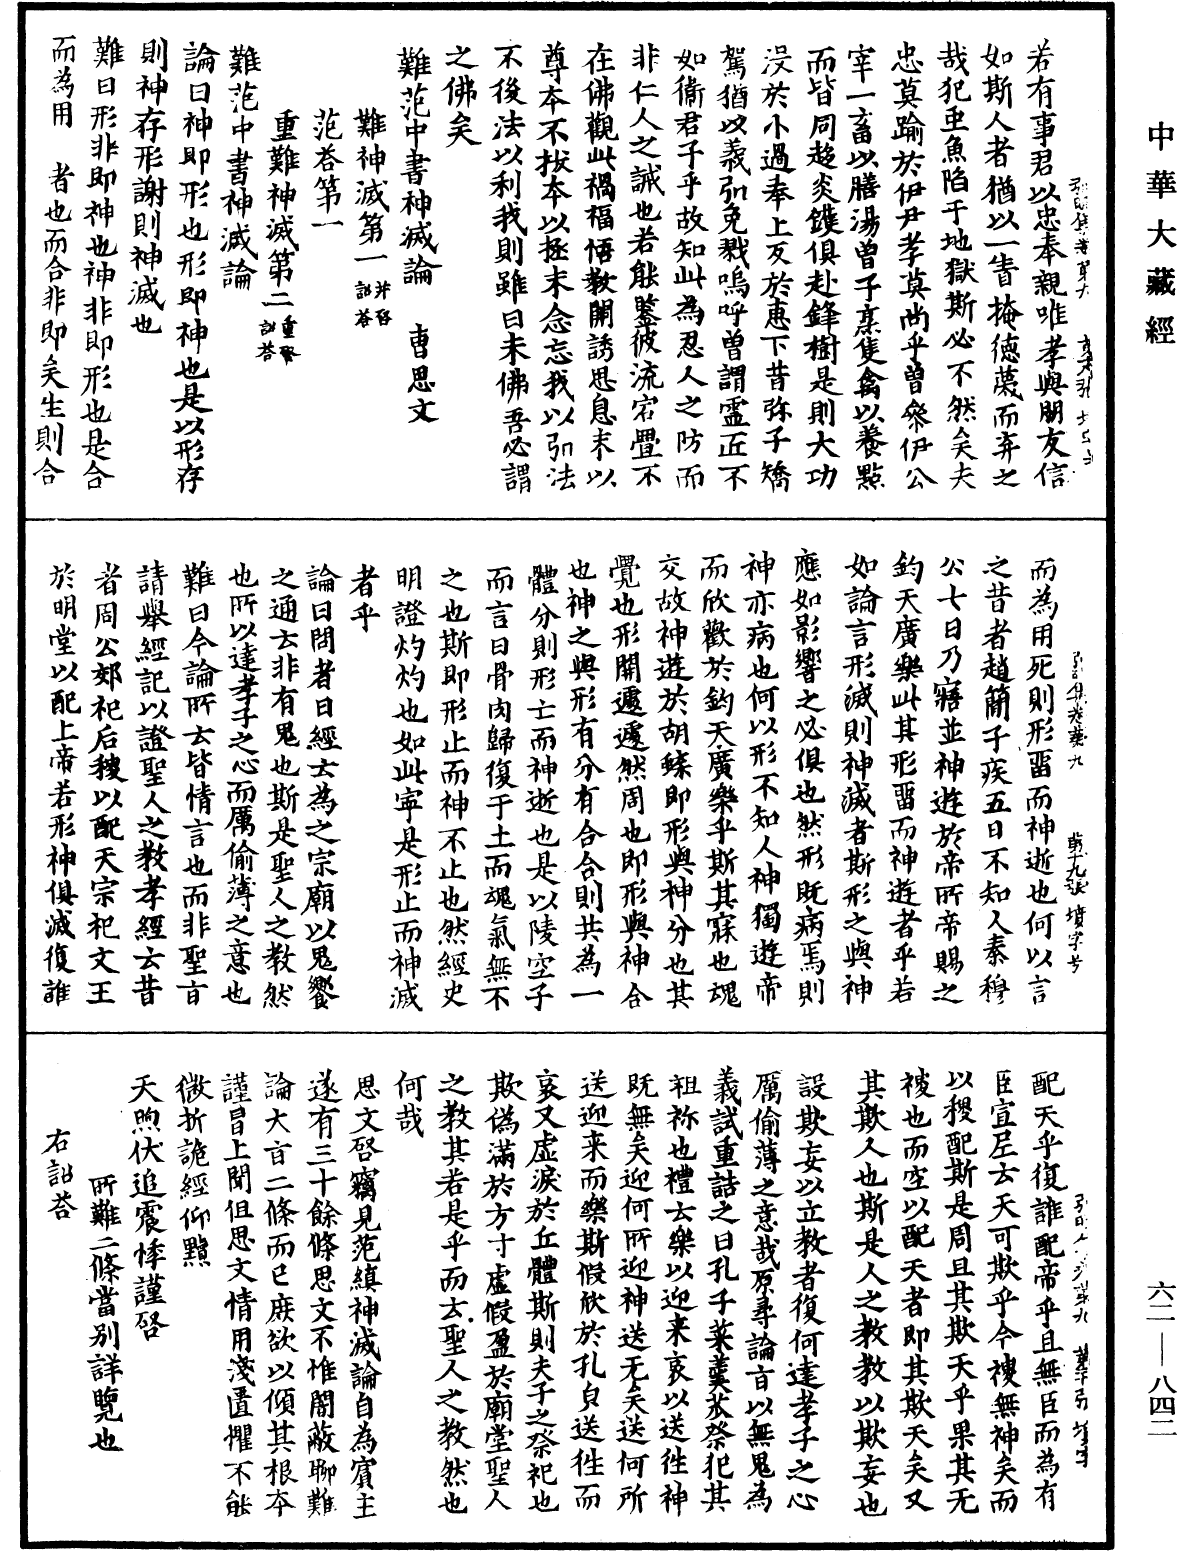 中華大藏經
若有事君以忠奉親唯孝與朋友信
如斯人者猶以一眚掩德蔑而弃之
哉犯王魚陷于地獄斯必不然矣夫
忠莫踰於伊尹孝莫尚乎曾參伊公
宰一畜以膳湯曾子烹隻禽以養點
而皆同趍炎鑊俱赴鋒樹是則大功
没於小過奉上反於惠下昔弥子矯
駕猶以義弘免戮嗚呼曾謂靈匠不
如衞君子乎故知此為忍人之防而
非仁人之誡也若能鑒彼流宕疊不
在佛觀此禍福悟教開誘思息末以
尊本不拔本以拯末念忘我以弘法
不後法以利我則雖曰未佛吾必謂
之佛矣
難范中書神滅論　曹思文
難神滅第一并啓詔荅
范荅第一
重難神滅第二重啓詔荅
難范中書神滅論
論曰神即形也形即神也是以形存
則神存形謝則神滅也
難曰形非即神也神非即形也是合
而為用　者也而合非即矣生則合
而為用死則形畱而神逝也何以言
之昔者趙簡子疾五日不知人秦穆
公七日乃寤並神遊於帝所帝賜之
鈞天廣樂此其形畱而神遊者乎若
如論言形滅則神滅者斯形之與神
應如影響之必俱也然形既病焉則
神亦病也何以形不知人神獨遊帝
而欣歡於鈞天廣樂乎斯其寐也魂
交故神遊於胡蝶即形與神分也其
覺也形開遽遽然周也即形與神合
也神之與形有分有合合則共為一
體分則形亡而神逝也是以陵空子
而言曰骨肉歸復于土而魂氣無不
之也斯即形止而神不止也然經史
明證灼灼也如此寧是形止而神滅
者乎
論曰問者曰經云為之宗廟以鬼饗
之通云非有鬼也斯是聖人之教然
也所以達孝子之心而厲偷薄之意也
難曰今論所云皆情言也而非聖旨
請舉經記以證聖人之教孝經云昔
者周公郊祀后稷以配天宗祀文王
於明堂以配上帝若形神俱滅復誰
配天乎復誰配帝乎且無臣而為有
臣宣尼云天可欺乎今稷無神矣而
以稷配斯是周旦其欺天乎果其无
稷也而空以配天者即其欺天矣又
其欺人也斯是人之教教以欺妄也
設欺妄以立教者復何達孝子之心
厲偷薄之意哉原尋論旨以無鬼為
義試重詰之曰孔子菜羹苽祭祀其
祖祢也禮云樂以迎来哀以送徃神
既無矣迎何所迎神送无矣送何所
送迎来而樂斯假欣於孔貞送徃而
哀又虚淚於丘體斯則夫子之祭祀也
欺偽滿於方寸虚假盈於廟堂聖人
之教其若是乎而云聖人之教然也
何哉
思文啓竊見范縝神滅論自為賓主
遂有三十餘條思文不惟闇蔽聊難
論大旨二條而已庶欲以傾其根本
謹冒上聞但思文情用淺匱懼不能
徴折詭經仰黷
天照伏追震悸謹啓
所難二條當别詳覽也
右詔荅
六二—八四二